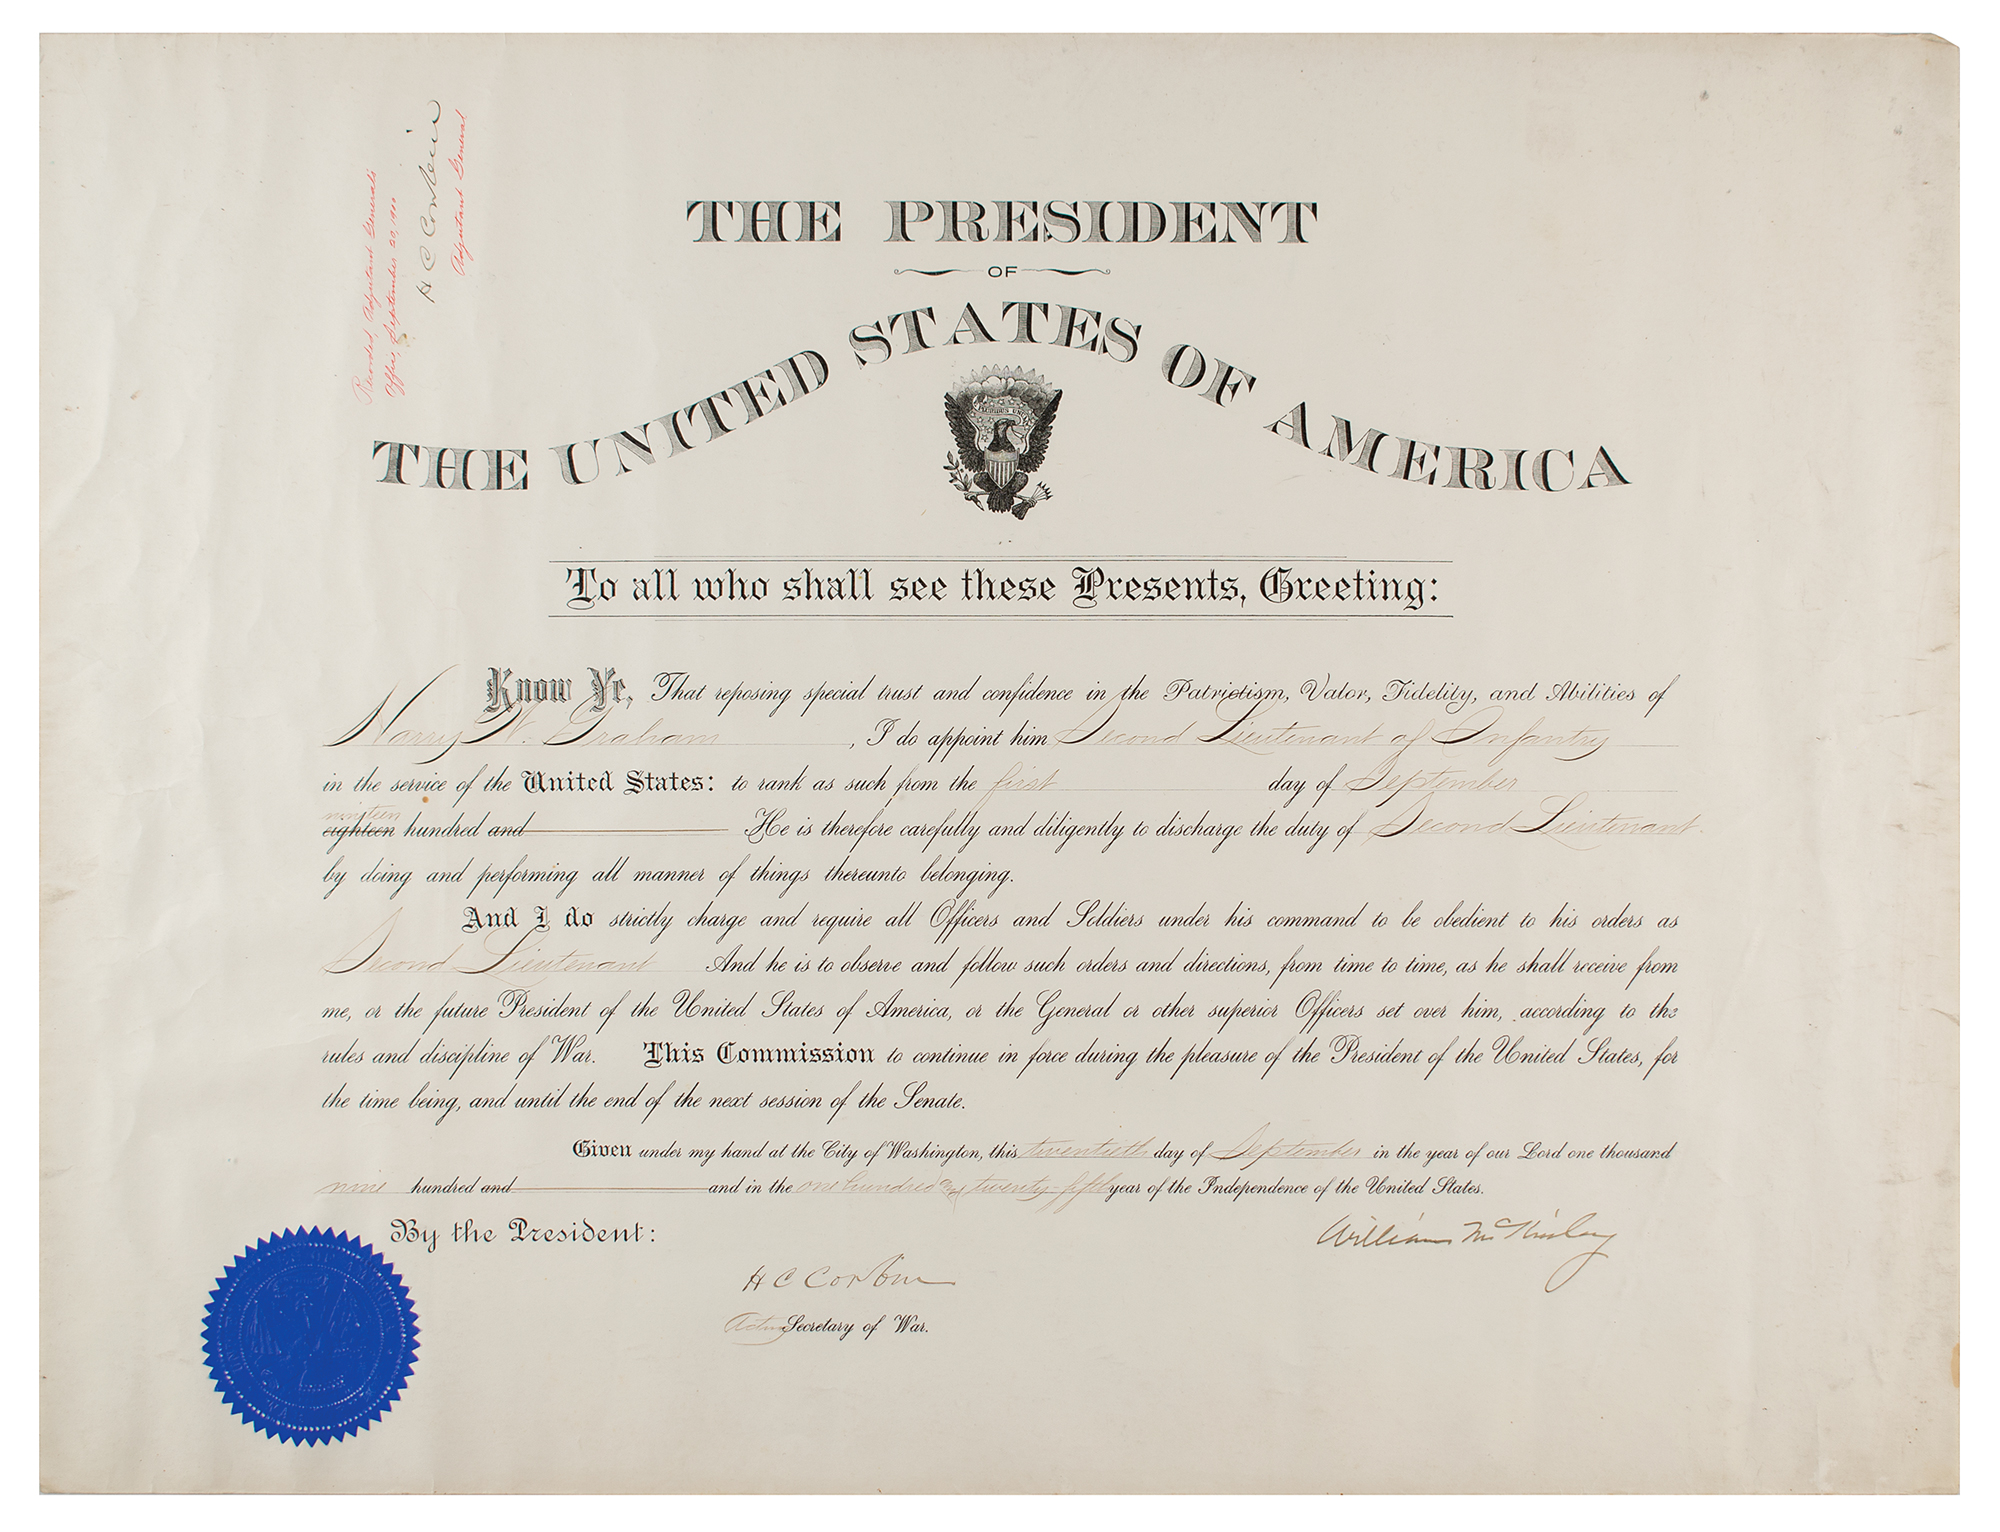 Recorded, Adjutant General's
Office, September 20, 1900
H C Corbin
Adjutant General
THE PRESIDENT
OF
THE UNITED STATES OF AMERICA
PLURIBUS UNUM
To all who shall see these Presents, Greeting:
Know Ye, That reposing special trust and confidence in the Patriotism, Valor, Fidelity, and Abilities of
Harry W. Graham, I do appoint him Second Lieutenant of Infantry
in the service of the United States: to rank as such from the first day of September
nineteen
eighteen hundred and He is therefore carefully and diligently to discharge the duty of Second Lieutenant
by doing and performing all manner of things thereunto belonging.
And I do strictly charge and require all Officers and Soldiers under his command to be obedient to his orders as
Second Lieutenant And he is to observe and follow such orders and directions, from time to time, as he shall receive from
me, or the future President of the United States of America, or the General or other superior Officers set over him, according to the
rules and discipline of War. This Commission to continue in force during the pleasure of the President of the United States, for
the time being, and until the end of the next session of the Senate.
Given under my hand at the City of Washington, this twentieth day of September in the year of our Lord one thousand
nine hundred and and in the one hundred and twenty-fifth year of the Independence of the United States.
By the President:
William McKinley
H C Corbin
Acting Secretary of War.